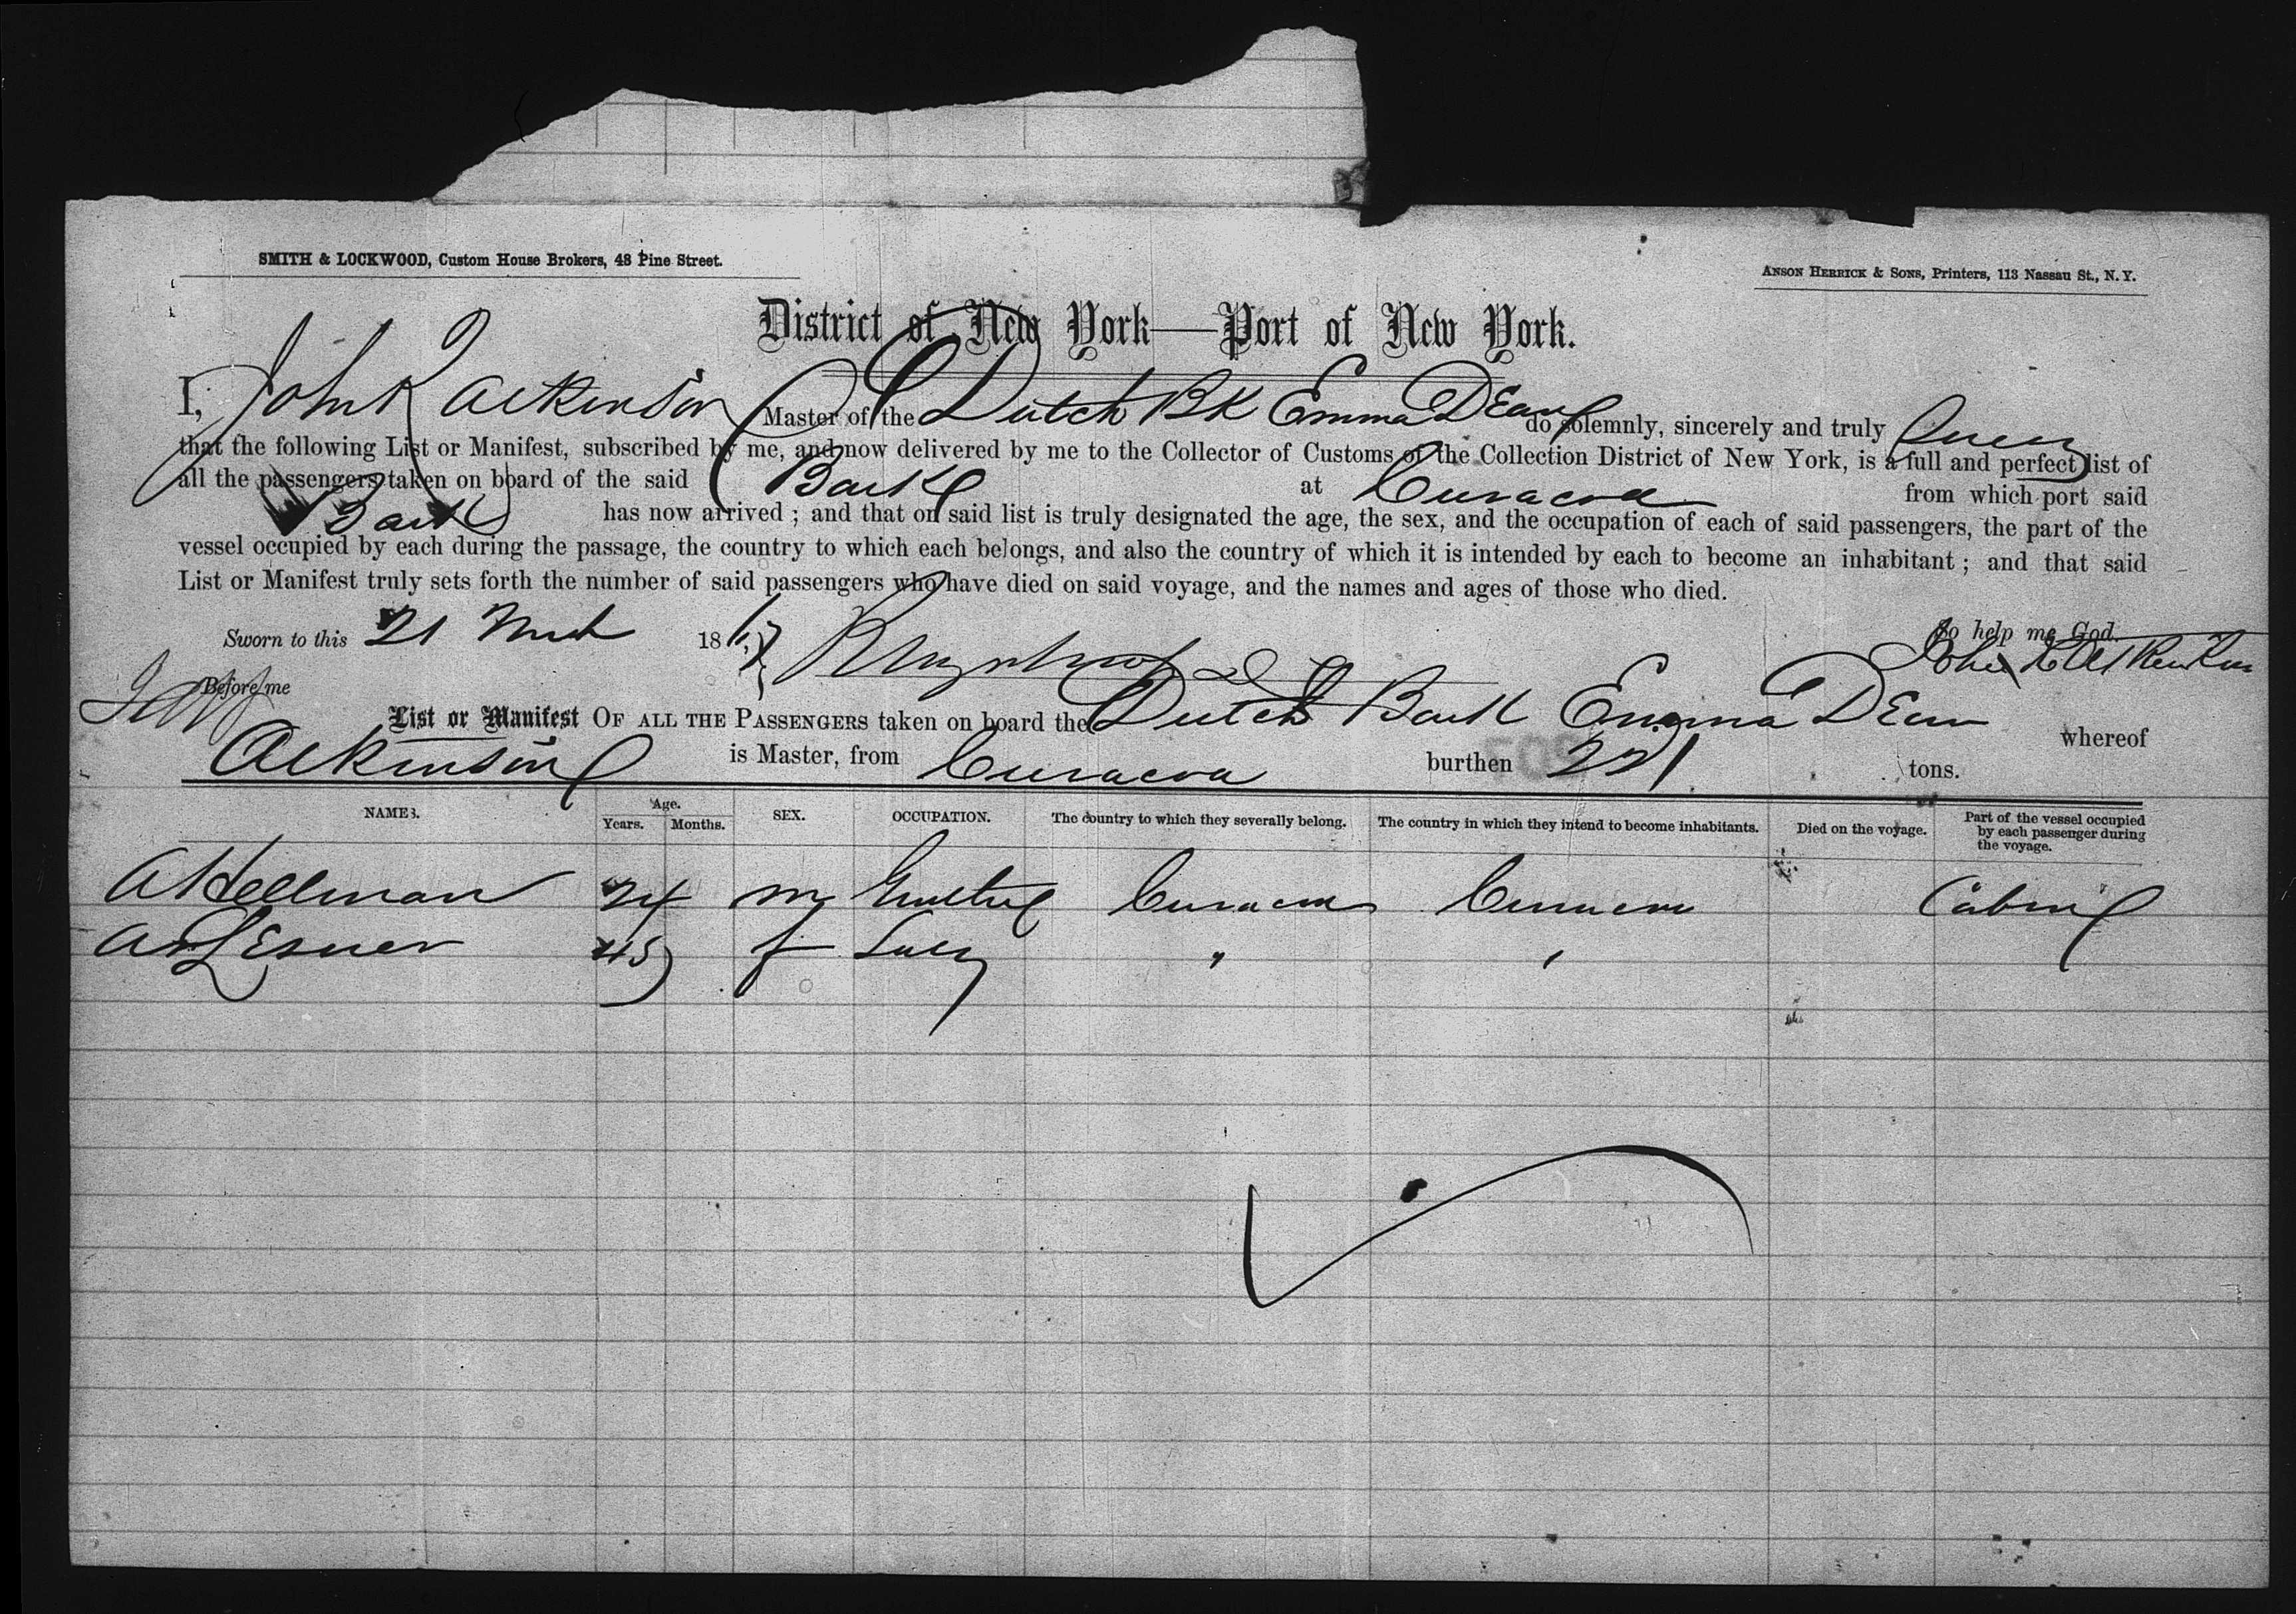 SMITH & LOCKWOOD, Custom House Brokers, 48 Pine Street.
ANSON HERRICK & SONS, Printers, 113 Nassau St., N. Y.
District of New York—Port of New York.
I, John R Atkinson Master of the Dutch BK Emma Dean do solemnly, sincerely and truly Swear
that the following List or Manifest, subscribed by me, and now delivered by me to the Collector of Customs of the Collection District of New York, is a full and perfect list of
all the passengers taken on board of the said Bark at Curacoa from which port said
Bark has now arrived ; and that on said list is truly designated the age, the sex, and the occupation of each of said passengers, the part of the
vessel occupied by each during the passage, the country to which each belongs, and also the country of which it is intended by each to become an inhabitant ; and that said
List or Manifest truly sets forth the number of said passengers who have died on said voyage, and the names and ages of those who died.
Sworn to this 21 March 18 So help me God.
John R Atkinson
Before me
List or Manifest OF ALL THE PASSENGERS taken on board the Dutch Bark Emma Dean whereof
Atkinson is Master, from Curacoa burthen 221 tons.
NAMES. Age. Years. Months. SEX. OCCUPATION. The country to which they severally belong. The country in which they intend to become inhabitants. Died on the voyage. Part of the vessel occupied by each passenger during the voyage.
A Hellman 24 m Curacoa Curacoa Cabin
Lesner 45 f Lady " "